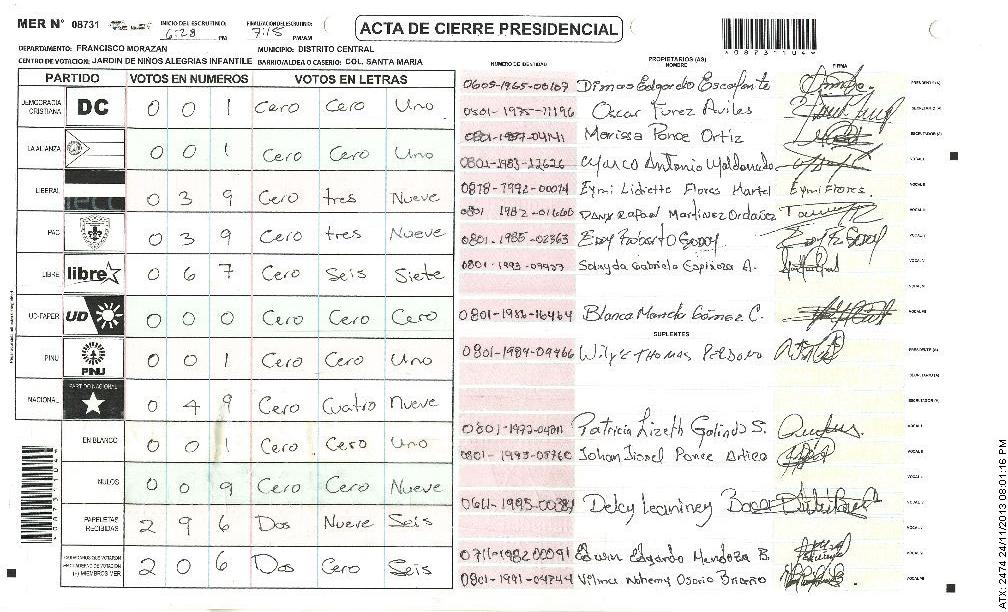 MER N° 08731 INICIO DEL ESCRUTINIO: 6:28 PM FINALIZACION ESCRUTINIO: 7:15 PM/AM
ACTA DE CIERRE PRESIDENCIAL
*08731104*
DEPARTAMENTO: FRANCISCO MORAZAN MUNICIPIO: DISTRITO CENTRAL
CENTRO DE VOTACION: JARDIN DE NIÑOS ALEGRIAS INFANTILE BARRIO/ALDEA O CASERIO: COL. SANTA MARIA
PARTIDO VOTOS EN NUMEROS VOTOS EN LETRAS
DEMOCRACIA CRISTIANA DC 0 0 1 Cero Cero Uno
LA ALIANZA 0 0 1 Cero Cero Uno
LIBERAL 0 3 9 Cero tres Nueve
PAC 0 3 9 Cero tres Nueve
LIBRE libre 0 6 7 Cero Seis Siete
UD-FAPER UD 0 0 0 Cero Cero Cero
PINU PINU 0 0 1 Cero Cero Uno
NACIONAL PARTIDO NACIONAL 0 4 9 Cero Cuatro Nueve
EN BLANCO 0 0 1 Cero Cero Uno
NULOS 0 0 9 Cero Cero Nueve
PAPELETAS RECIBIDAS 2 9 6 Dos Nueve Seis
(+) MIEMBROS MER 2 0 6 Dos Cero Seis
NUMERO DE IDENTIDAD PROPIETARIOS (AS) NOMBRE FIRMA
0605-1965-00167 PRESIDENTE (A)
0501-1975-11196 Oscar Aviles SECRETARIO (A)
0801-1987-04141 Marissa Ponce Ortiz ESCRUTADOR (A)
0801-1983-12626 Marco Antonio Maldonado VOCAL I
0878-1992-00074 Eymi Lidiette Flores Martel Eymi Flores. VOCAL II
0801 1982-01660 Dany Rafael Martinez Ordoñez
0801-1985-02363 Eddy Roberto Godoy
0801-1993-09927 Sobayda Gabriela Espinoza A.
0801-1986-16464 Blanca Marcela Gómez C.
SUPLENTES
0801-1984-09766 Thomas PRESIDENTE (A)
SECRETARIO (A)
ESCRUTADOR (A)
0801-1973-04811 Patricia Lizeth Galindo S. VOCAL I
0801-1993-05760 Johan Ponce
1985-00381 Delcy
0711-1982 00091 Edwin Edgardo Mendoza B.
0801-1991-04744 Vilma Nohemy Osorio Briceño
ATX 2474 24/11/2013 08:01:16 PM